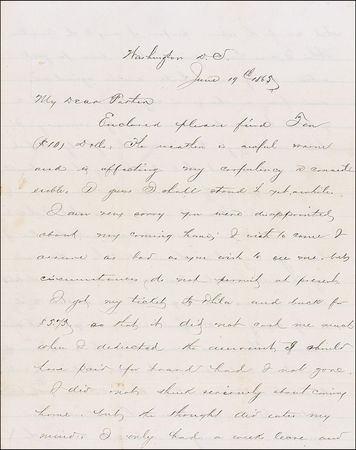 Washington D.C.
June 19th 1865
My Dear Parker
Enclosed please find Ten
($10) Dolls. The weather is awful warm
and is affecting my corpulency consid
erable. I guess I shall stand it yet awhile.
I am very sorry you were disappointed
about my coming home; I wish to come I
assure as bad as you wish to see me. but
circumstances do not permit at present
I got my tickets to Phila. and back for
so that it did not cost me much
when I deducted the amount I should
have paid for board had I not gone.
I did not think seriously about coming
home. but, the thought did enter my
mind. I only had a weeks leave and